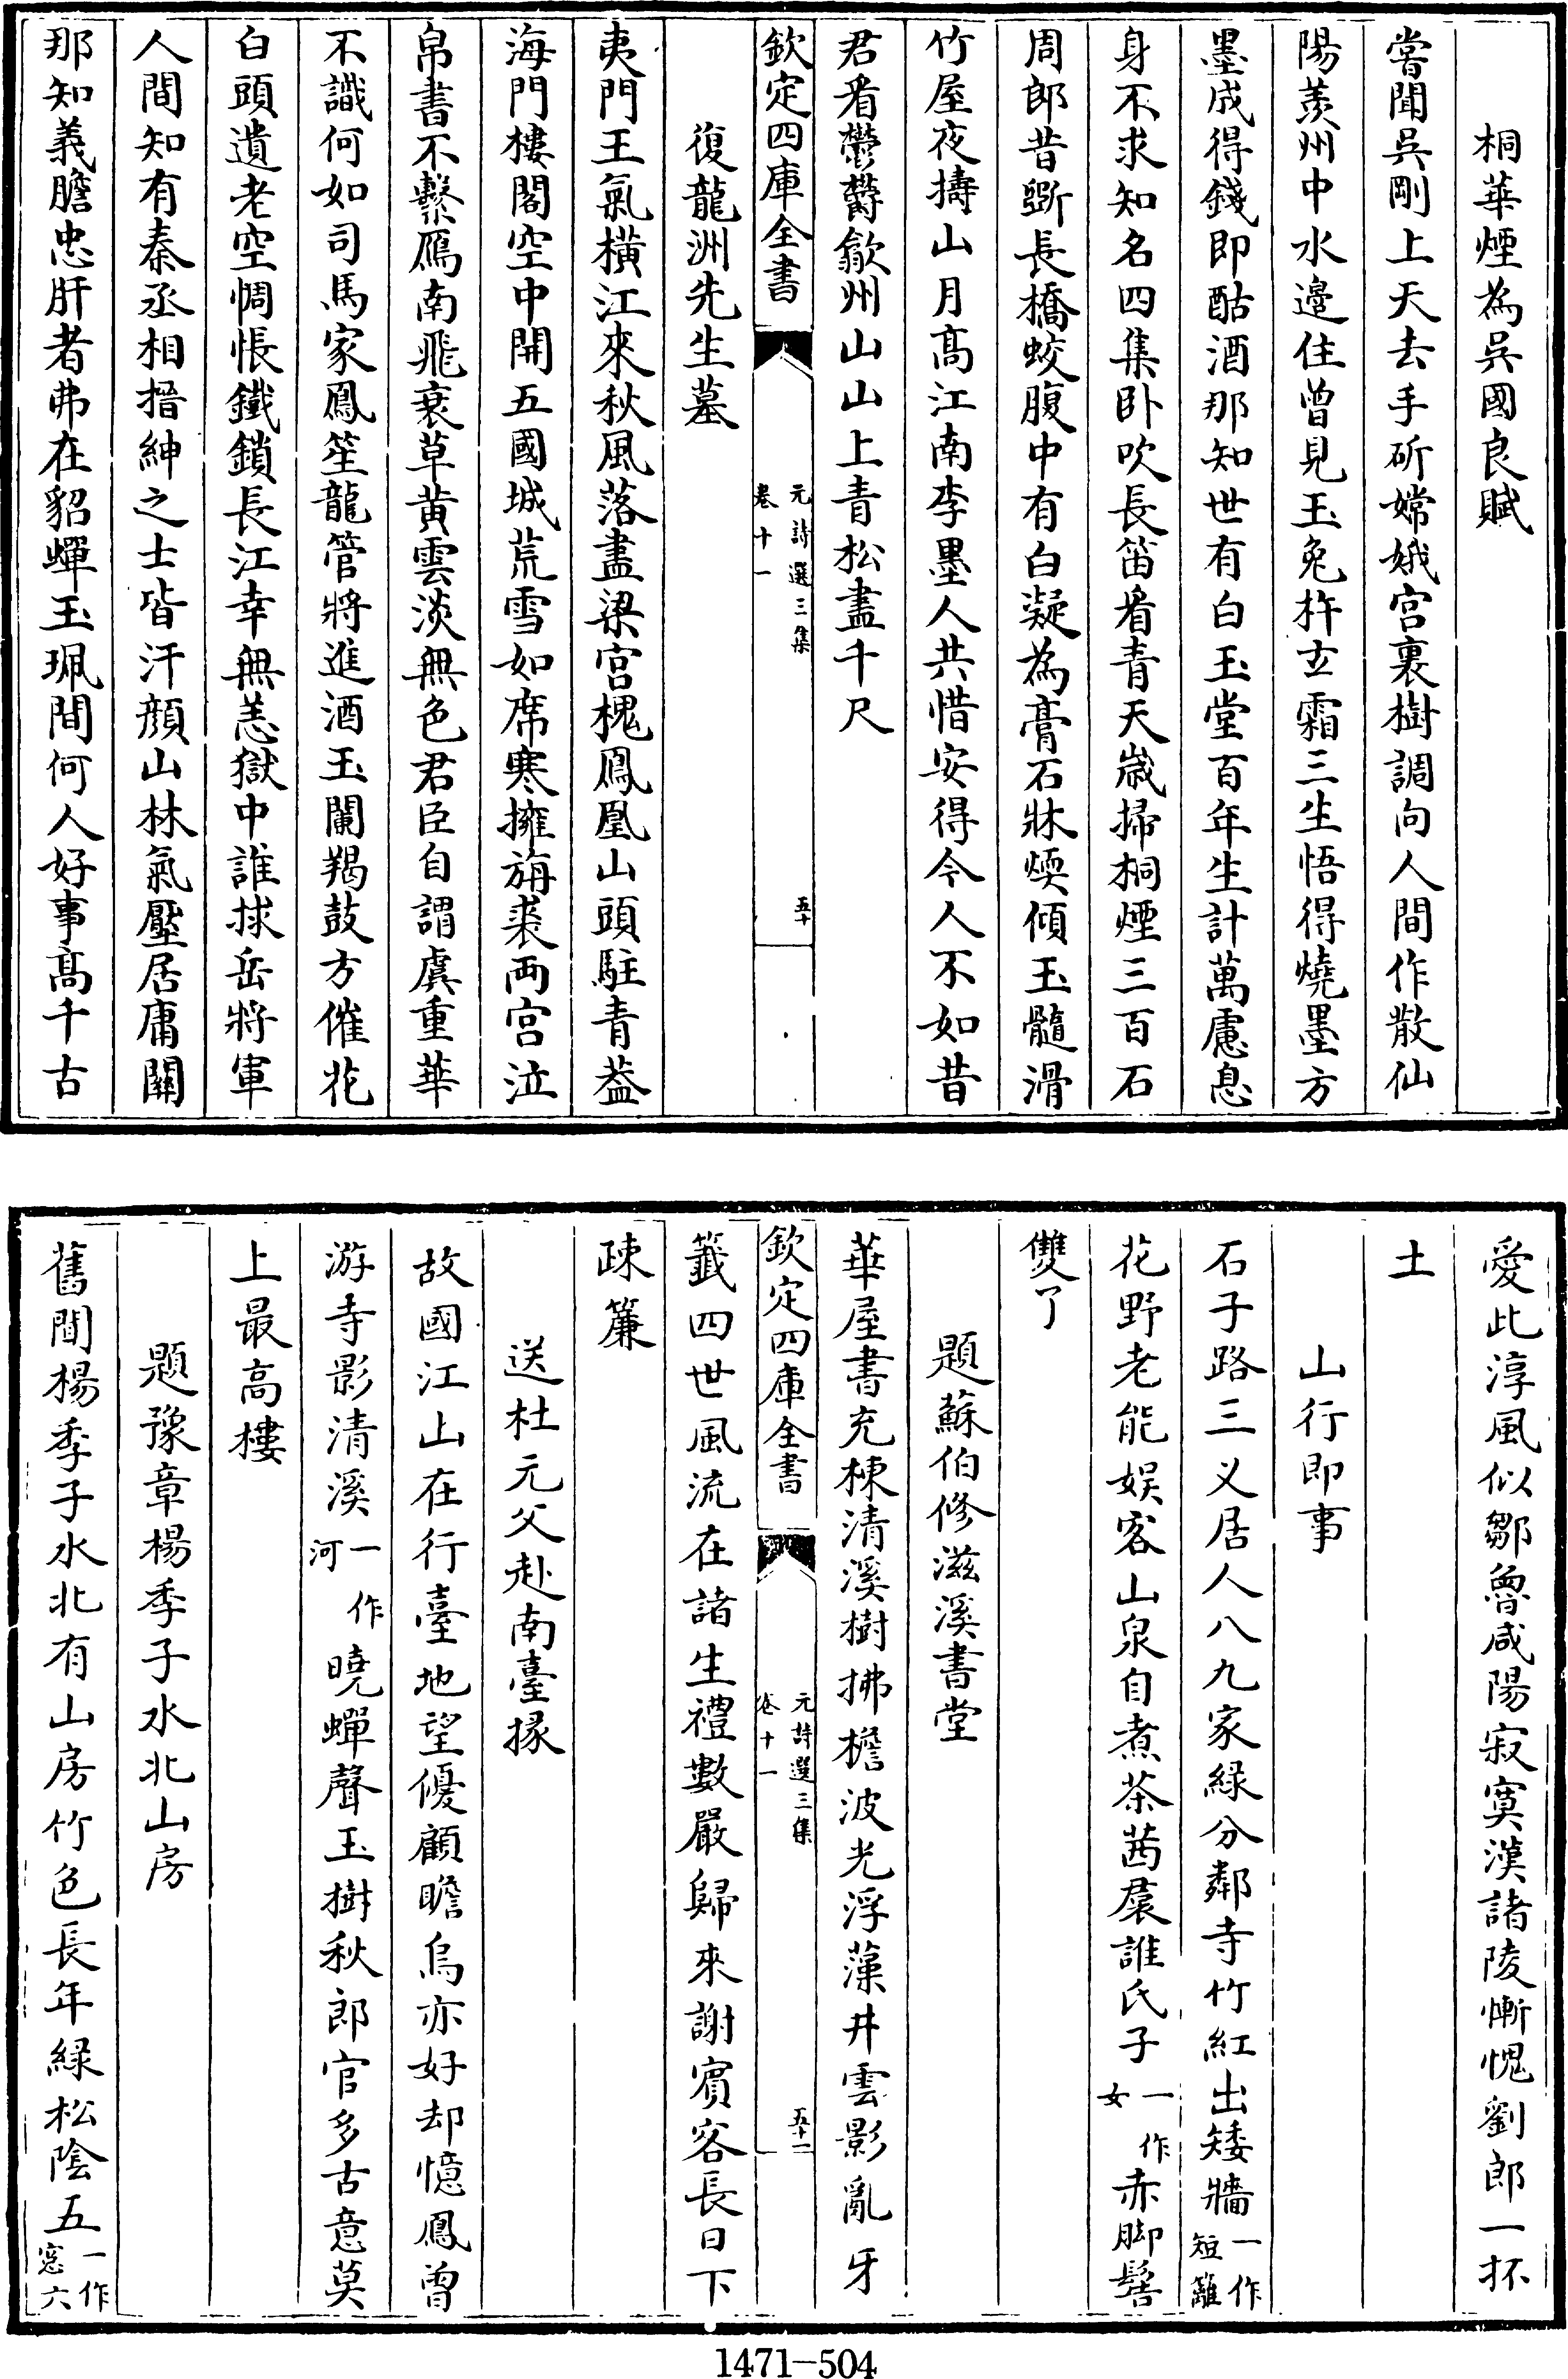 桐華煙為呉國良賦
嘗聞呉剛上天去手斫嫦娥宮裏樹調向人間作散仙
陽羨州中水邉住曾見玉兔杵玄霜三生悟得燒墨方
墨成得錢即酤酒那知世有白玉堂百年生計萬慮息
身不求知名四集卧吹長笛看青天歲掃桐煙三百石
周郎昔斲長橋蛟腹中有白凝為膏石牀煗傾玉髓滑
竹屋夜擣山月髙江南李墨人共惜安得今人不如昔
君看鬱鬱歙州山山上青松盡千尺
欽定四庫全書
元詩選三集
卷十一
五十
復龍洲先生墓
夷門王氣横江來秋風落盡梁宮槐鳳凰山頭駐青葢
海門樓閣空中開五國城荒雪如席寒擁旃裘兩宮泣
帛書不繫鴈南飛衰草黃雲淡無色君臣自謂虞重華
不識何如司馬家鳳笙龍管將進酒玉闌羯鼓方催花
白頭遺老空惆悵鐵鎖長江幸無恙獄中誰捄岳將軍
人間知有秦丞相搢紳之士皆汗顔山林氣壓居庸關
那知義膽忠肝者弗在貂蟬玉珮間何人好事髙千古
愛此淳風似鄒魯咸陽寂寞漢諸陵慚愧劉郎一抔
土
山行即事
石子路三乂居人八九家緑分鄰寺竹紅出矮牆一作短籬
花野老能娱客山泉自煮茶茜裠誰氏子一作女赤脚髻
雙丫
題蘇伯修滋溪書堂
華屋書充棟清溪樹拂檐波光浮藻井雲影亂牙
欽定四庫全書
元詩選三集
卷十一
五十一
籖四世風流在諸生禮數嚴歸來謝賓客長日下
疎簾
送杜元父赴南臺掾
故國江山在行臺地望優顧瞻烏亦好却憶鳳曾
游寺影清溪一作河曉蟬聲玉樹秋郎官多古意莫
上最高樓
題豫章楊季子水北山房
舊聞楊季子水北有山房竹色長年緑松陰五一作窓六
1471—504